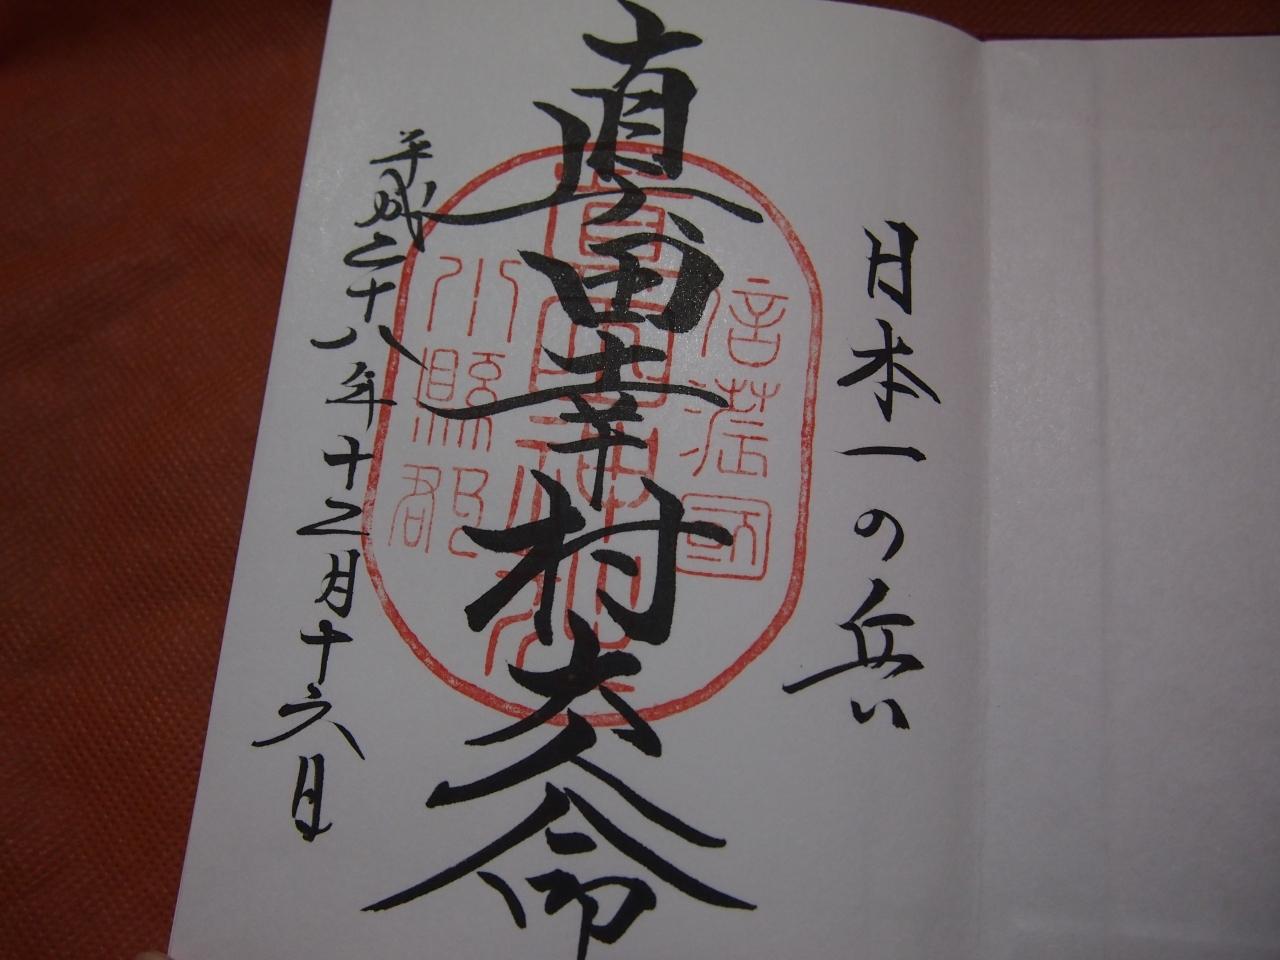 日本一の兵
真田幸村大命
平成二十八年十二月十六日
信濃國
真田神社
小縣郡